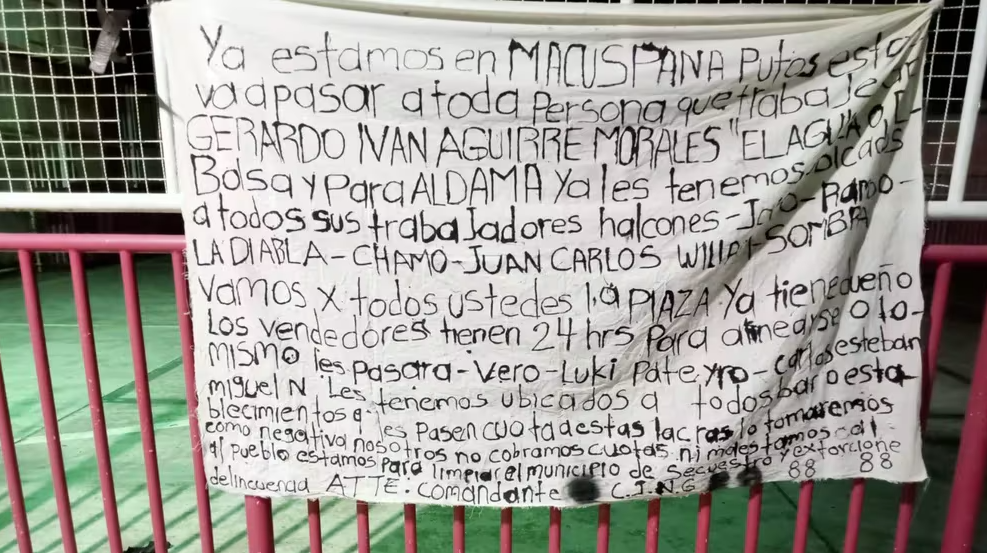 Ya estamos en MACUSPANA Putos esto
va a pasar a toda Persona que trabaje
GERARDO IVAN AGUIRRE MORALES "EL AGUILA O L-
Bolsa y Para ALDAMA Ya les tenemos
a todos sus trabaJadores halcones - - -
LA DIABLA - CHAMO - JUAN CARLOS - SOMBRA
Vamos x todos ustedes la PlAZA Ya tiene dueño
Los vendedores tienen 24 hrs Para alinearse o lo-
MISMO les Pasara - Vero - Luki Pate yro - carlos esteban
miguel N Les tenemos ubicados a todos bar o esta-
blecimientos q. les Pasen cuota de estas lacras lo tomaremos
como negativa nosotros no cobramos cuotas ni molestamos
al pueblo estamos Para limpiar el municipio de secuestro y extorcione
delincuencia ATTE. comandante C.J.N.G 88 88